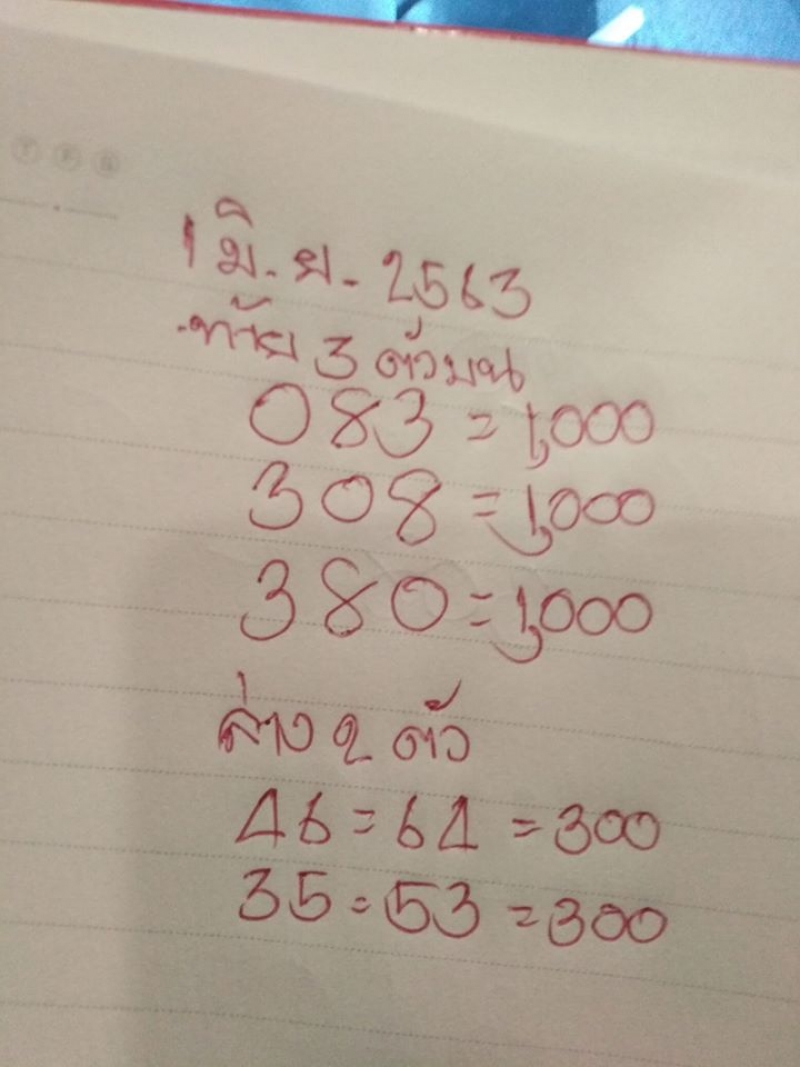 1 มิ.ย. 2563
ท้าย 3 ตัวบน
083 = 1,000
308 = 1,000
380 = 1,000
ล่าง 2 ตัว
46 = 64 = 300
35 = 53 = 300